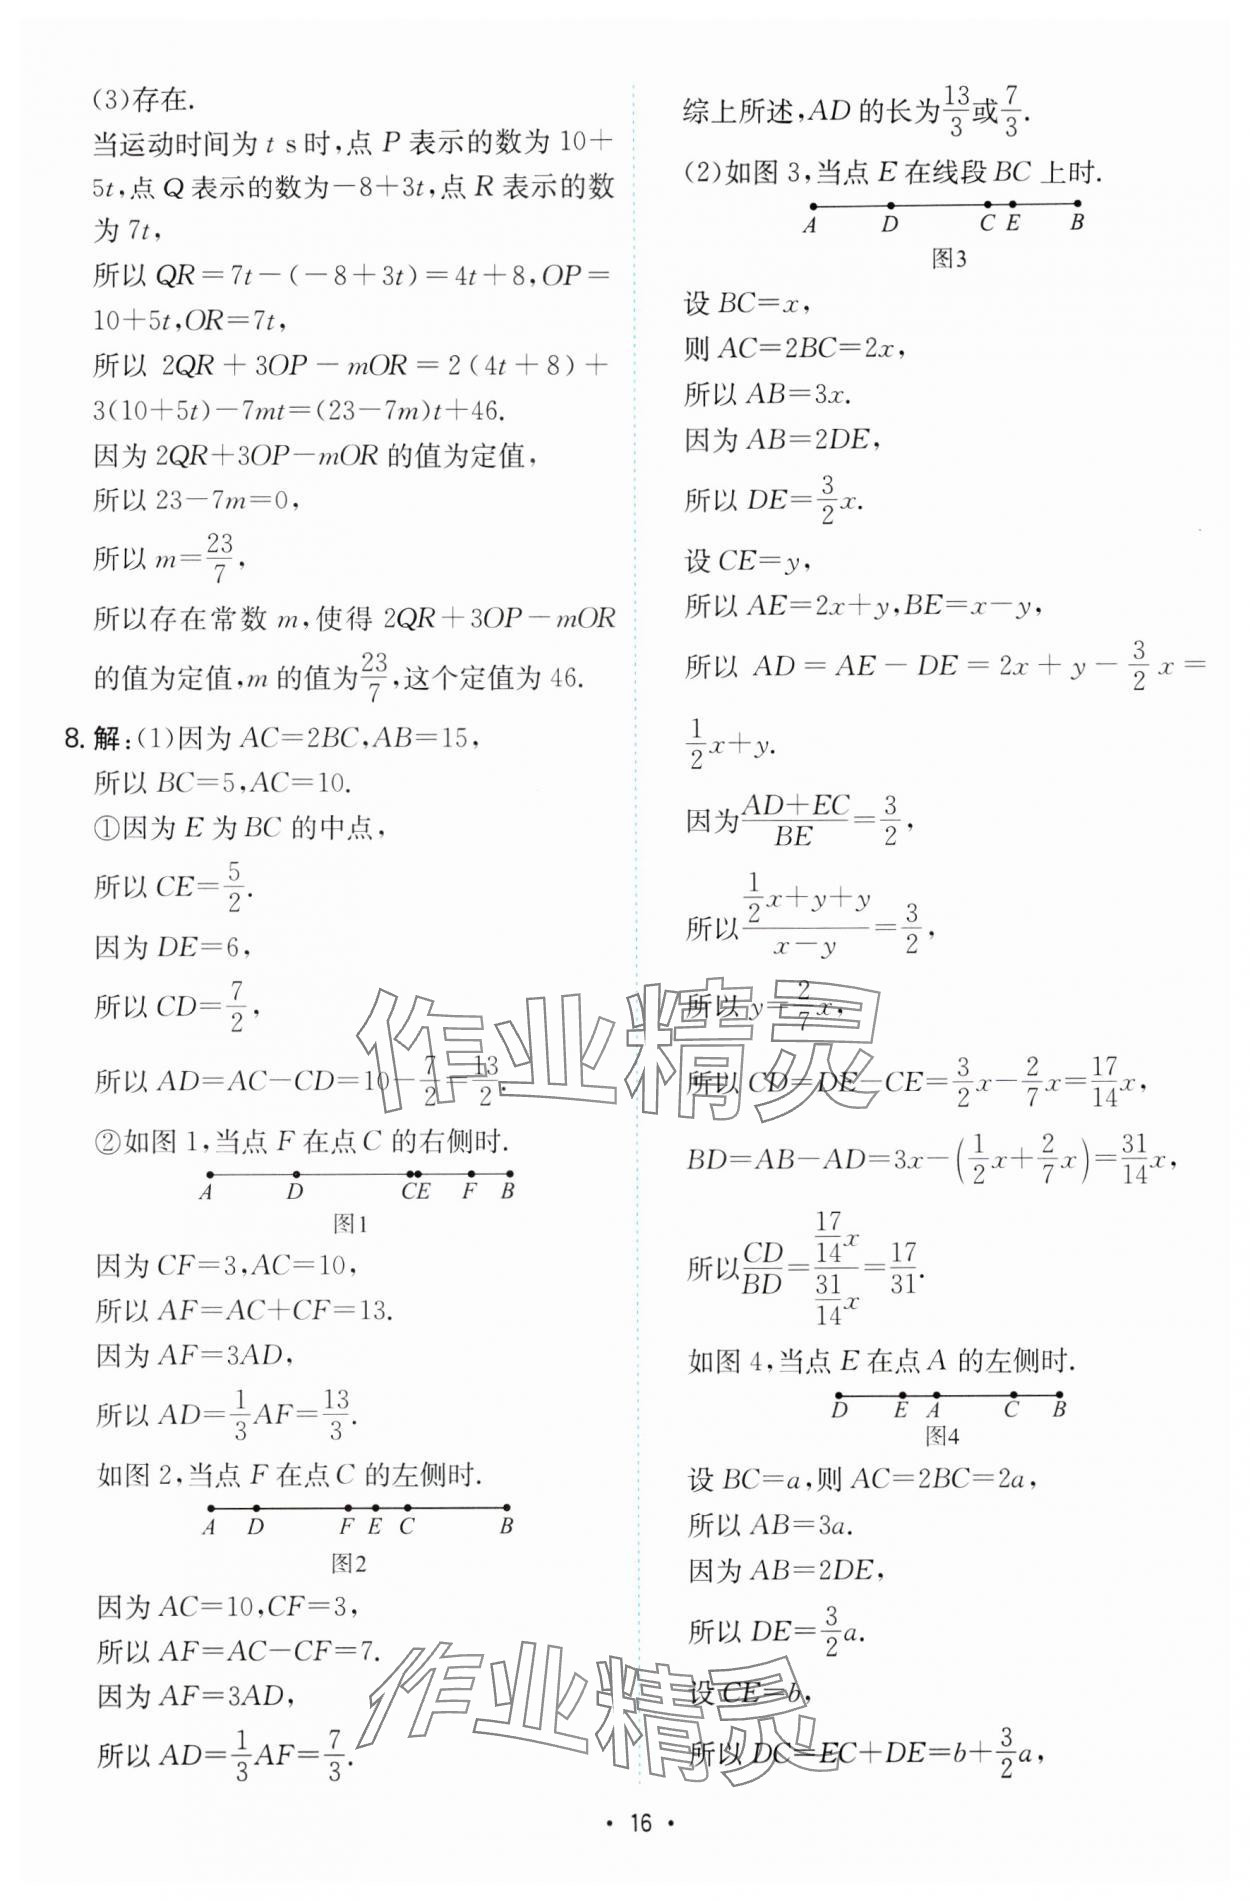 (3)存在.
当运动时间为 t s时,点 P 表示的数为 10+
5t,点 Q 表示的数为−8+3t,点 R 表示的数
为 7t,
所以 QR=7t−(−8+3t)=4t+8,OP=
10+5t,OR=7t,
所以 2QR+3OP−mOR=2(4t+8)+
3(10+5t)−7mt=(23−7m)t+46.
因为 2QR+3OP−mOR 的值为定值,
所以 23−7m=0,
所以 m=23/7,
所以存在常数 m,使得 2QR+3OP−mOR
的值为定值,m 的值为23/7,这个定值为 46.
8. 解:(1)因为 AC=2BC,AB=15,
所以 BC=5,AC=10.
①因为 E 为 BC 的中点,
所以 CE=5/2.
因为 DE=6,
所以 CD=7/2,
所以 AD=AC−CD=10−7/2=13/2.
②如图 1,当点 F 在点 C 的右侧时.
A D CE F B
图1
因为 CF=3,AC=10,
所以 AF=AC+CF=13.
因为 AF=3AD,
所以 AD=1/3AF=13/3.
如图 2,当点 F 在点 C 的左侧时.
A D F E C B
图2
因为 AC=10,CF=3,
所以 AF=AC−CF=7.
因为 AF=3AD,
所以 AD=1/3AF=7/3.
综上所述,AD 的长为13/3或7/3.
(2)如图 3,当点 E 在线段 BC 上时.
A D C E B
图3
设 BC=x,
则 AC=2BC=2x,
所以 AB=3x.
因为 AB=2DE,
所以 DE=3/2x.
设 CE=y,
所以 AE=2x+y,BE=x−y,
所以 AD=AE−DE=2x+y−3/2x=
1/2x+y.
因为(AD+EC)/BE=3/2,
所以(1/2x+y+y)/(x−y)=3/2,
所以 y=2/7x,
所以 CD=DE−CE=3/2x−2/7x=17/14x,
BD=AB−AD=3x−(1/2x+2/7x)=31/14x,
所以CD/BD=(17/14x)/(31/14x)=17/31.
如图 4,当点 E 在点 A 的左侧时.
D E A C B
图4
设 BC=a,则 AC=2BC=2a,
所以 AB=3a.
因为 AB=2DE,
所以 DE=3/2a.
设 CE=b,
所以 DC=EC+DE=b+3/2a,
作业精灵
作业精灵
• 16 •